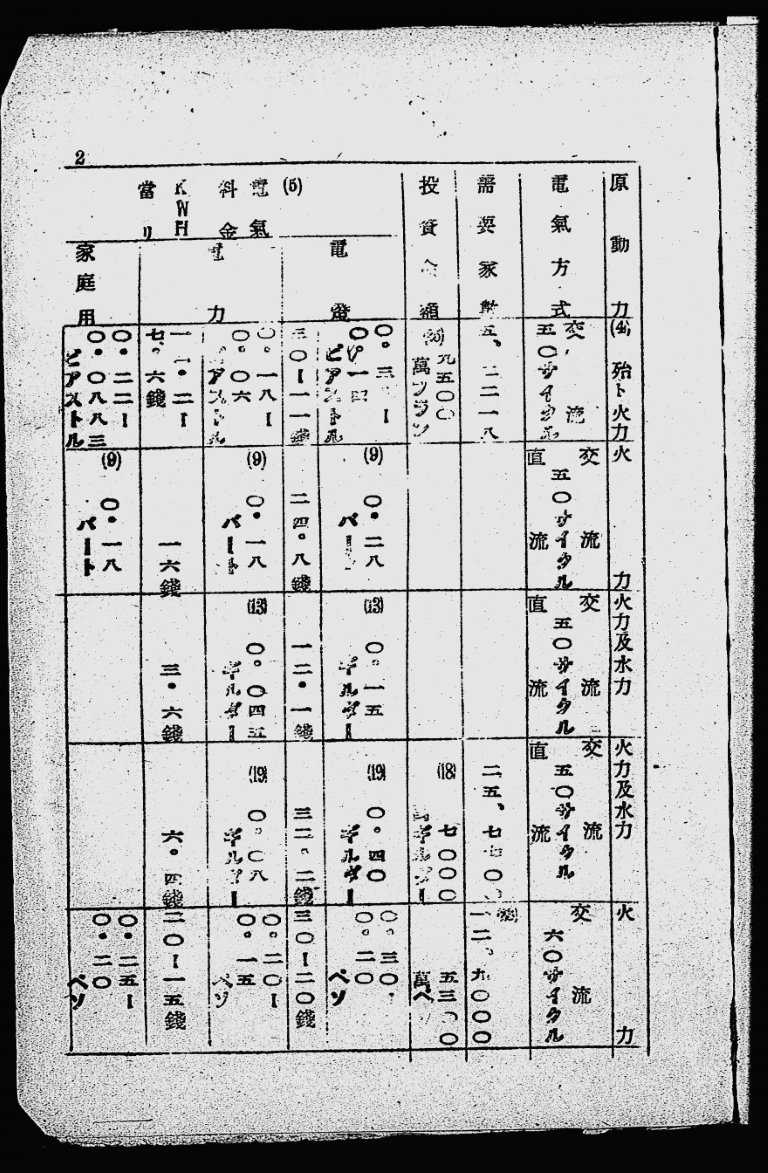 2
原動力
電氣方式
需要家數
投資金額
(5)
電氣
料金
KWH
當リ
電燈
電力
家庭用
(4)
殆ト火力
交流
五〇サイクル
五、二二一八
九五〇〇
萬フラン
〇・一四
ピアストル
三〇ー一一錢
〇・一八ー
〇・〇六
一一・二ー
七・六錢
〇・二二ー
〇・〇八八三
ピアストル
火力
交流
五〇サイクル
直流
(9)
〇・二八
バート
二四・八錢
(9)
〇・一八
バート
一六錢
(9)
〇・一八
バート
火力及水力
交流
五〇サイクル
直流
(13)
〇。一五
ギルダー
一二・一錢
(13)
〇。〇四五
ギルダー
三・六錢
火力及水力
交流
五〇サイクル
直流
二五、七七〇
(18)
七〇〇〇
ギルダー
(19)
〇。四〇
ギルダー
三二。二錢
(19)
〇。〇八
ギルダー
六。四錢
火力
交流
六〇サイクル
一二。九〇〇〇
萬ペソ
〇。三〇ー
〇。二〇
ペソ
三〇ー二〇錢
〇。二〇ー
〇。一五
ペソ
二〇ー一五錢
〇・二五ー
〇・二〇
ペソ